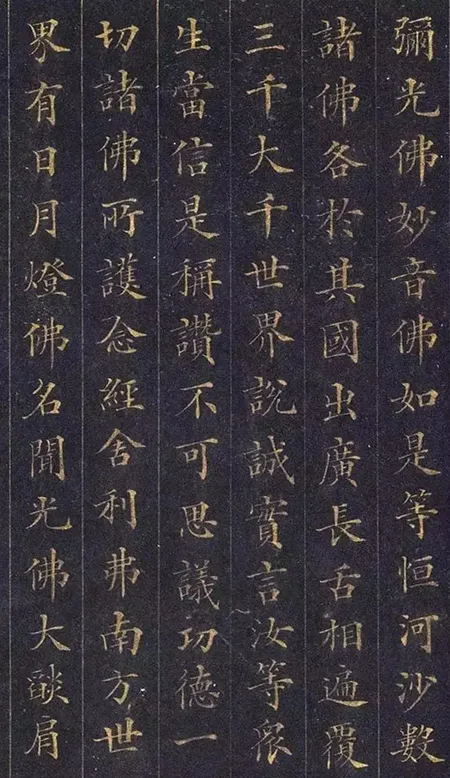 彌光佛妙音佛如是等恒河沙數
諸佛各於其國出廣長舌相遍覆
三千大千世界說誠實言汝等眾
生當信是稱讚不可思議功德一
切諸佛所護念經舍利弗南方世
界有日月燈佛名聞光佛大燄肩